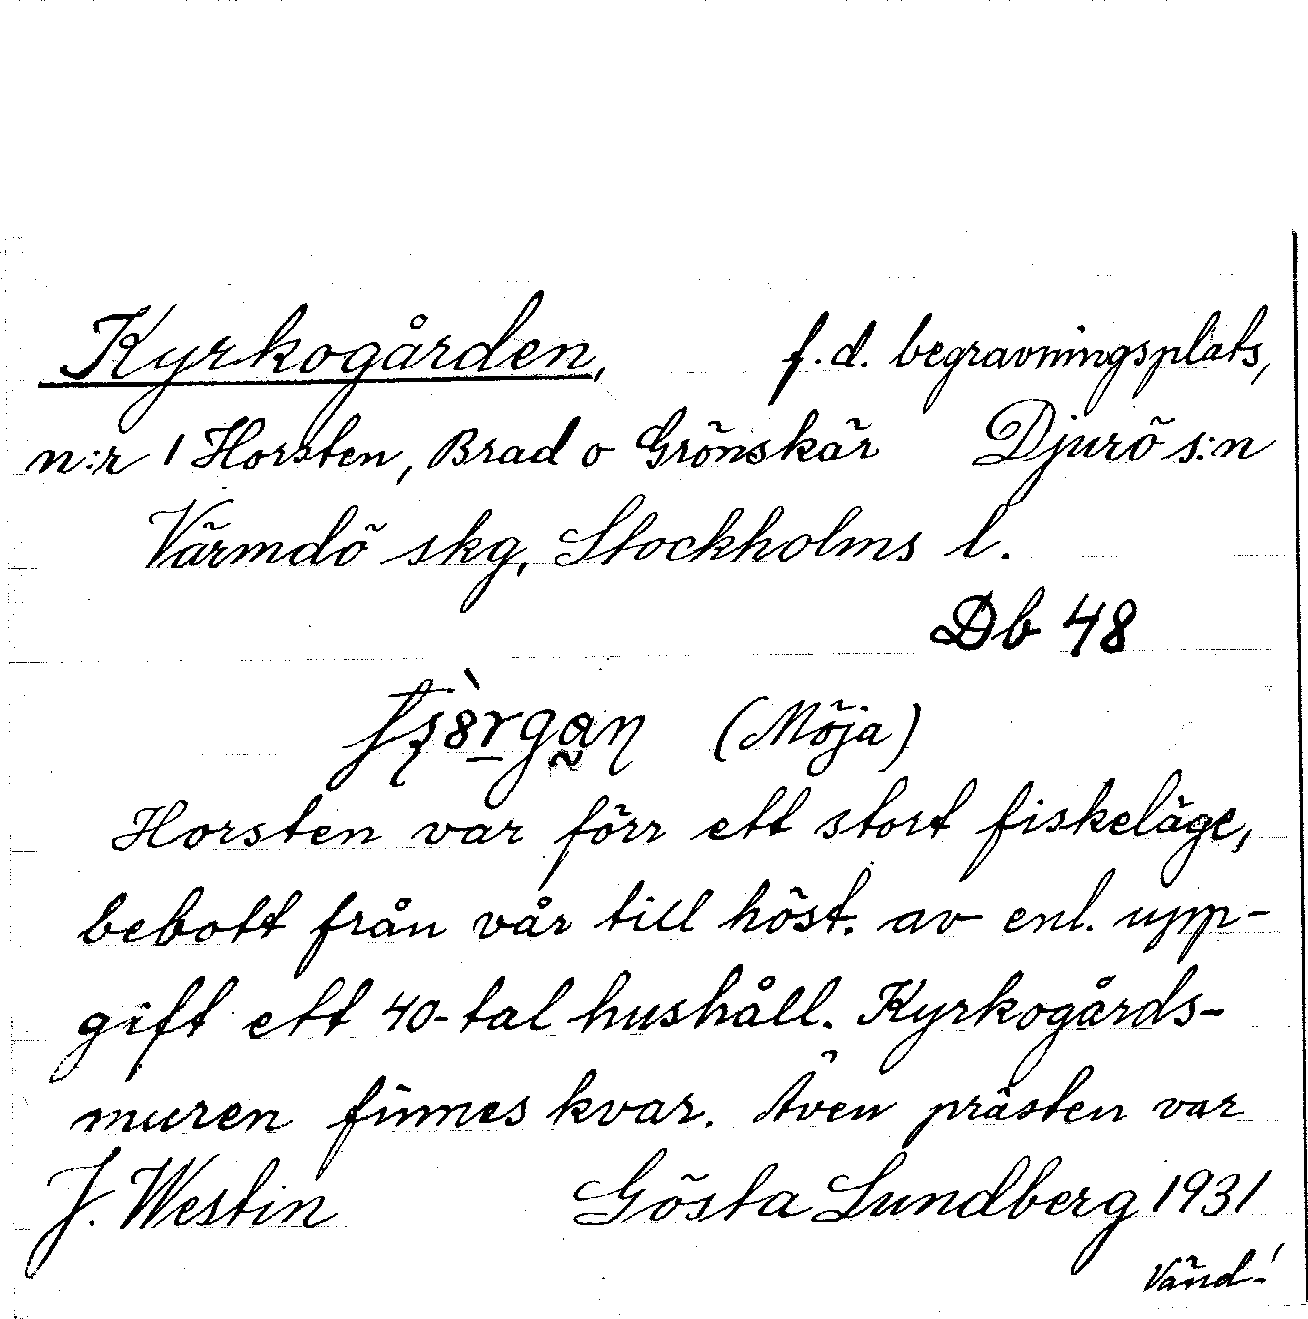 Kyrkogården, f. d. begravningsplats,
n:r 1 Horsten, Brad o Grönskär Djurö s:n
Värmdö skg, Stockholms l.
Db 48
(Möja)
Horsten var förr ett stort fiskeläge,
bebott från vår till höst. av enl. upp-
gift ett 40-tal hushåll. Kyrkogårds-
muren finnes kvar. Även prästen var
J. Westin Gösta Lundberg 1931
Vänd!